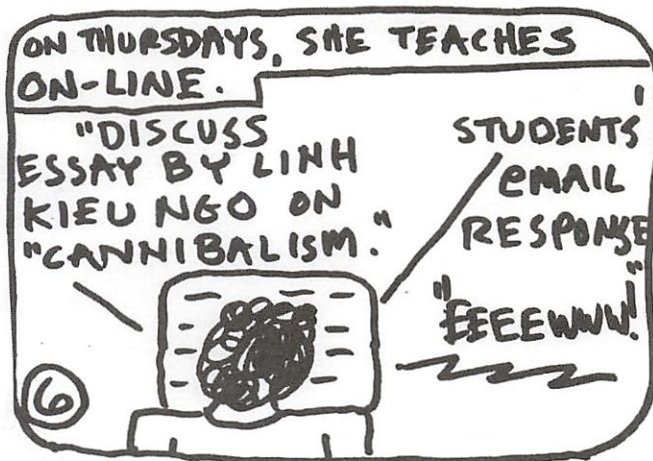 ON THURSDAYS, SHE TEACHES
ON-LINE.
"DISCUSS
ESSAY BY LINH
KIEU NGO ON
"CANNIBALISM."
STUDENTS'
eMAIL
RESPONSE
"EEEEWWW!"
6